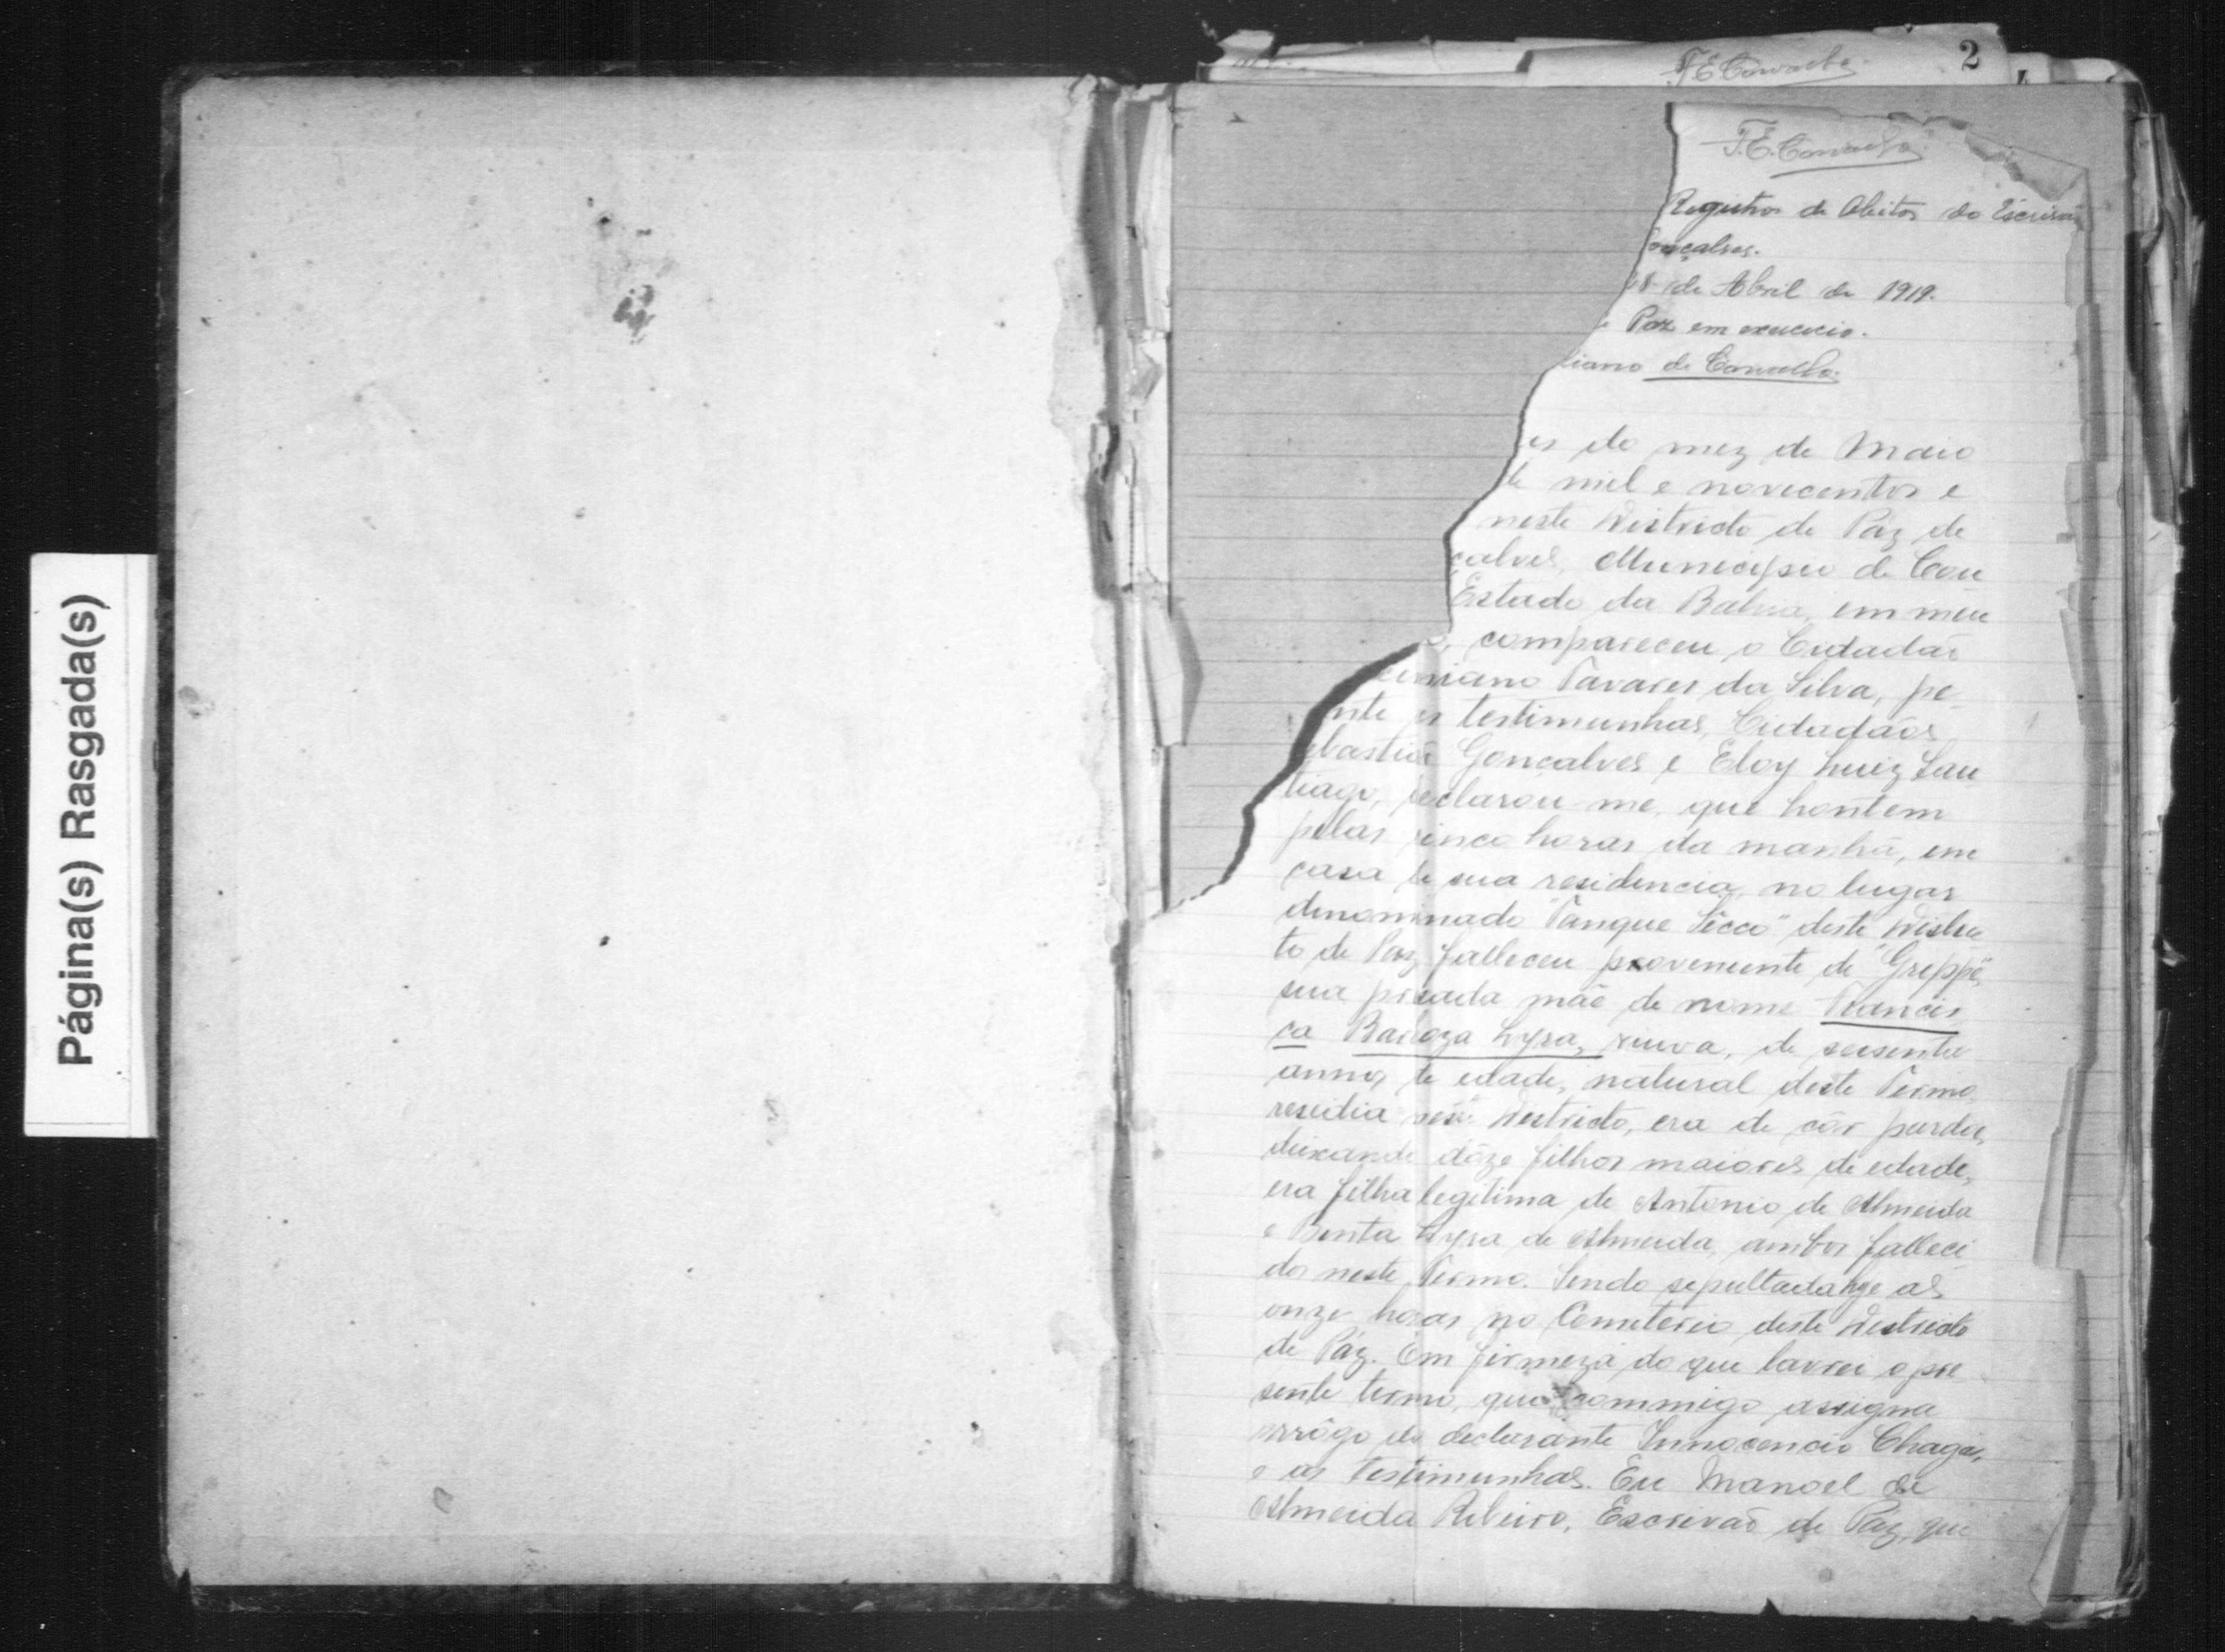 Página(s) Rasgada(s)
T.E. Carvalho
2
T.E. Carvalho
Registros de Obitos do Escrivão
onçalves.
18 de Abril de 1919.
Paz em exercicio.
liano de Carvalho.
es do mez de Maio
de mil e novecentos e
neste Districto de Páz de
çalves, Municipio de Con
Estado da Bahia, em meu
o, compareceu o Cidadão
Tavares da Silva, pe-
nte as testimunhas, Cidadãos
ebastião Gonçalves e Eloy Luiz San
tiago, declarou-me, que hontem
pelas cinco horas da manhã, em
casa de sua residencia, no lugar
denominado "Tanque Sêcco" deste Distric
to de Paz, falleceu proveniente de "Grippe",
sua presada mãe de nome Francis
ca Barboza Lyra, viuva, de secenta
annos de edade, natural deste Termo
residia neste Districto, era de côr parda,
deixando dôze filhos maiores de edade,
era filha legitima de Antonio de Almeida
e Benta Lyra de Almeida, ambos falleci
dos neste Termo. Sendo sepultada hoje as
onze horas no Cemiterio deste Districto
de Páz. Em firmeza do que lavrei o pre
sente termo, que commigo assigna
arrôgo do declarante Innocencio Chagas,
e as testimunhas. Eu Manoel de
Almeida Ribeiro, Escrivão de Páz, que